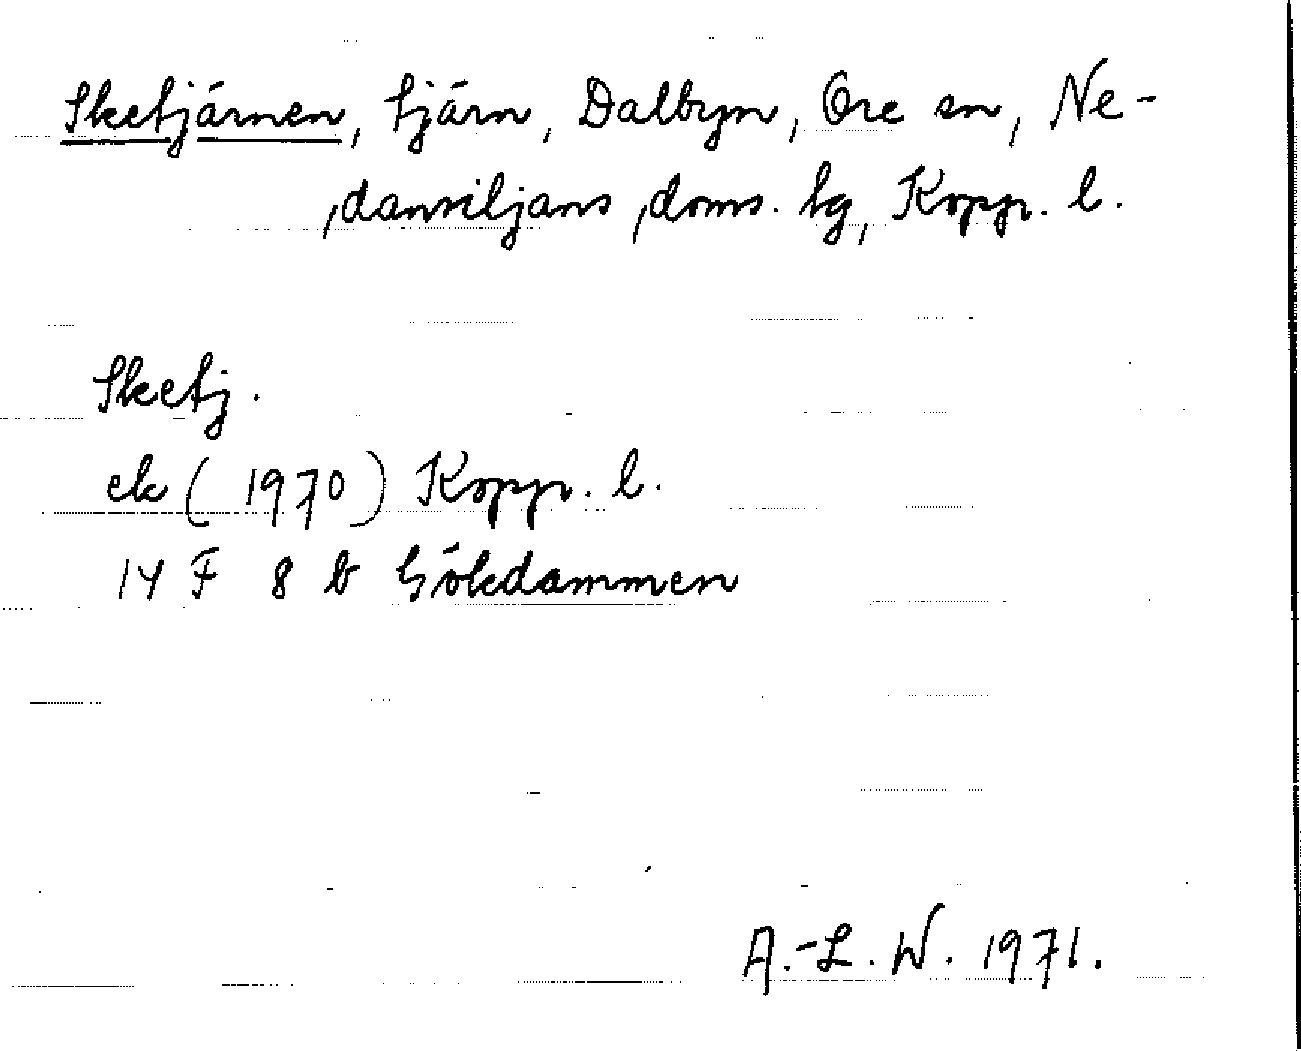 Sketjärnen, tjärn, Dalbyn, Ore sn, Ne-
dansiljans doms. tg, Kopp. l.
Sketj.
ek (1970) Kopp. l.
14 F 8 b Gökdammen
A.-L. W. 1971.